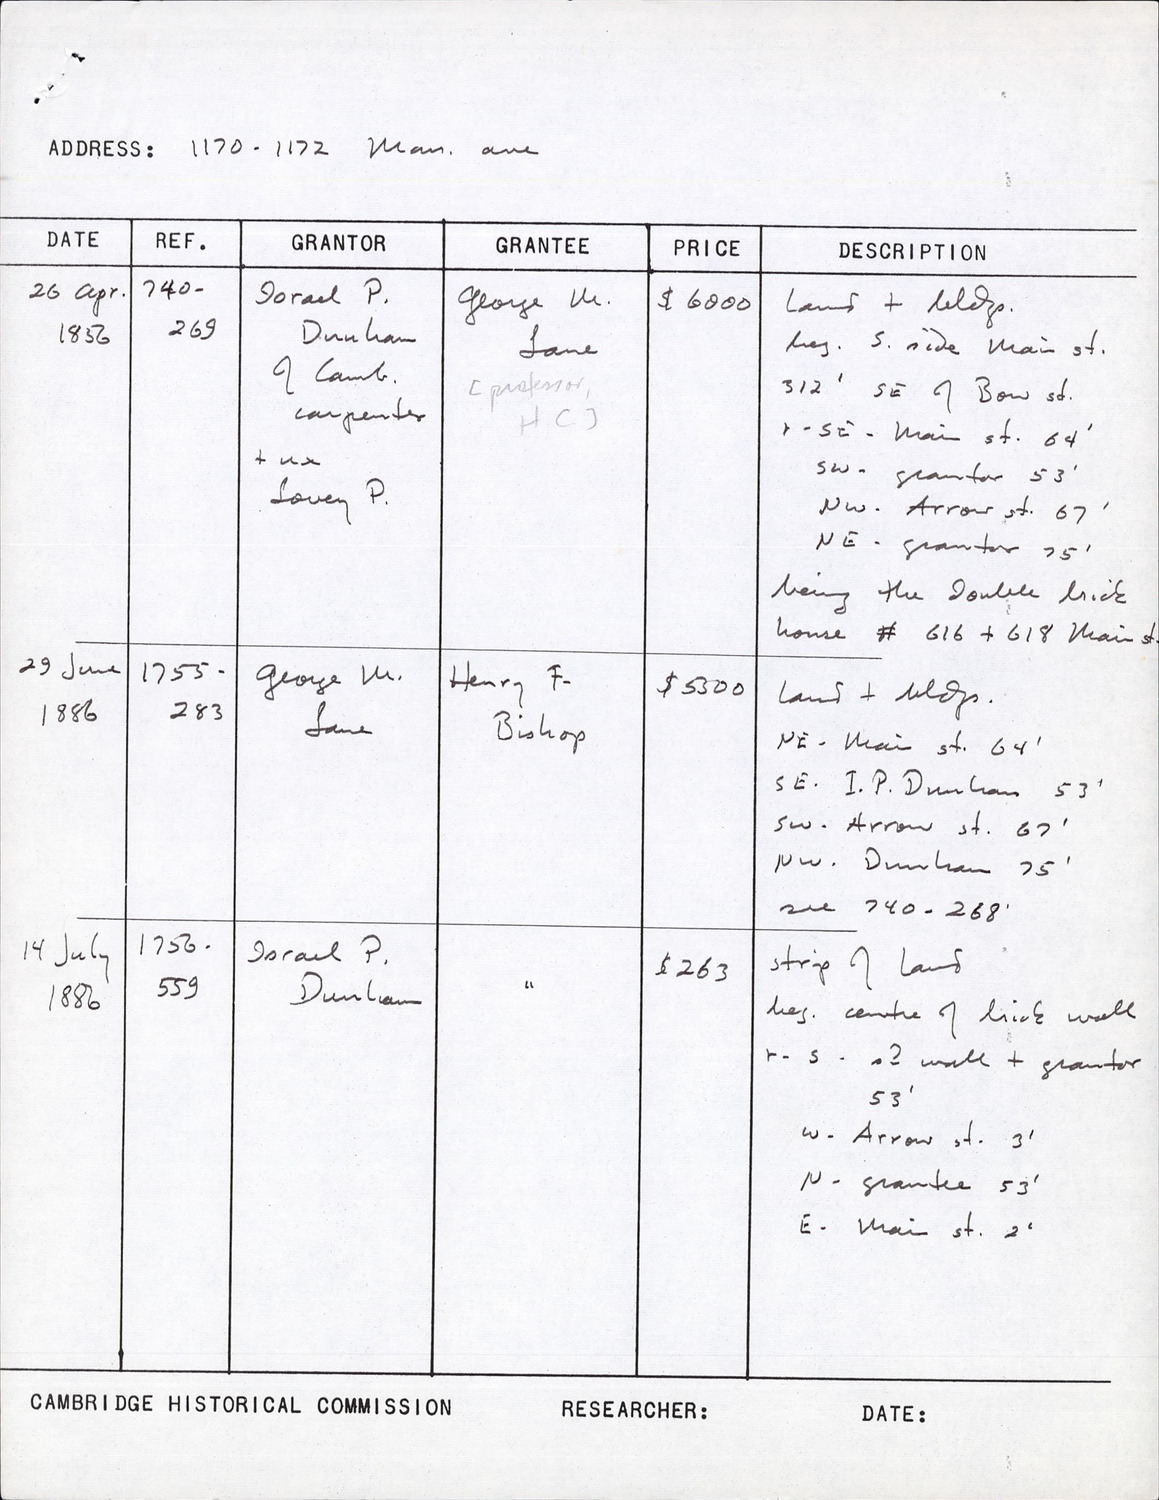 ADDRESS: 1170-1172 Mass. ave
DATE REF. GRANTOR GRANTEE PRICE DESCRIPTION
26 Apr. 1856
740-269
Israel P.
Dunham
of Camb.
carpenter
+ ux
Lovey P.
George M.
Lane
[professor,
HC]
$6000
land + bldgs.
beg. S. side Main st.
312' SE of Bow st.
r-SE- Main st. 64'
SW- grantor 53'
NW. Arrow st. 67'
NE- grantor 75'
being the double brick
house # 616 + 618 Main st.
29 June
1886
1755-
283
George M.
Lane
Henry F.
Bishop
$5300
land + bldgs.
NE- Main st. 64'
SE. I.P. Dunham 53'
SW. Arrow st. 67'
NW. Dunham 75'
see 740-268'
14 July
1886
1756-
559
Israel P.
Dunham
"
$263
strip of land
beg. centre of brick wall
r- S - sd wall + grantor
53'
W- Arrow st. 3'
N- grantee 53'
E- Main st. 2'
CAMBRIDGE HISTORICAL COMMISSION RESEARCHER: DATE: